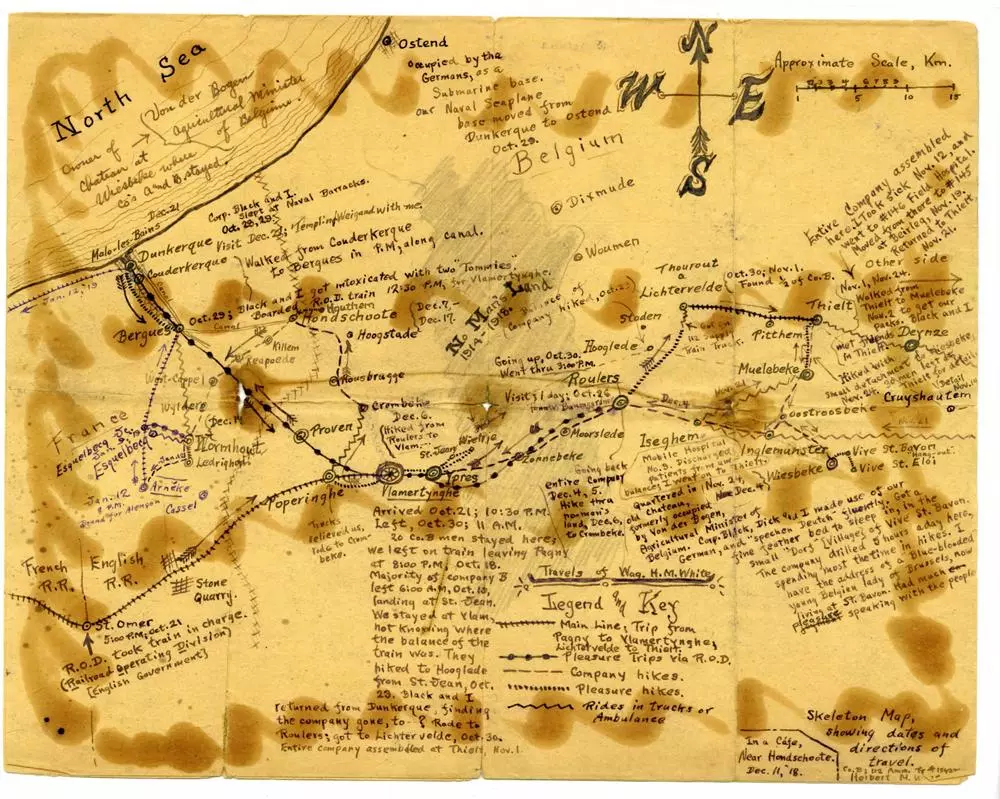 North Sea
Von der Bogen
agricultural minister
of Belgium.
Owner of
Chateau at
Wiesbeke where
Co's A and B stayed.
Ostend
Occupied by the
Germans, as a
Submarine base.
Our Naval Seaplane
base moved from
Dunkerque to Ostend
Oct. 29.
Belgium
N
W
E
S
Approximate Scale, Km.
5
10
15
Dixmude
Woumen
Dec. 21
Corp. Black and I
slept at Naval Barracks.
Oct. 28, 29.
Malo-les-Bains
Dunkerque Visit Dec. 22; Templin, Weigand with me.
Couderkerque
Walked from Couderkerque
to Bergues in P.M, along canal.
Jan. 12, 19
Canal
Bergues
Oct. 29; Black and I got intoxicated with two "Tommies".
Boarded R.O.D. train 12:30 P.M. for Vlamertynghe.
Canal
Hondschoote
Dec. 7-
Dec. 17.
No Man's Land
1914-1918.
Balance of
Company hiked, Oct. 23
Killem
Hoogstade
Rousbrugge
West-Cappel
Wylder
Dec. 11
Proven
Crombeke
Dec. 6.
(Hiked from
Roulers to
Vlam.
France
Esquelbecq
Esquelbecq
Wormhout
Ledrighen
Arneke
Jan. 12
Cassel
Poperinghe
Vlamertynghe
St. Jean
Wieltje
Ypres
Zonnebeke
Moorslede
Going up, Oct. 30.
Went thru 3:00 P.M.
Roulers
Visit 1 day; Oct. 26
Hooglede
Staden
Thourout
Lichtervelde
Oct. 30; Nov. 1.
Found ½ of Co. B.
Got in
112 Supply
Train Truck.
Pitthem
Thielt
Entire Company assembled
here. I Took sick Nov. 12, and
went to #146 Field Hospital.
Moved from there to #145
at Beirleg, Nov. 19.
Returned to Thielt
Nov. 21.
Other side
Nov. 1, Nov. 24.
Walked from
Muelebeke
Deynze
Muelebeke
Cruyshautem
Oostroosbeke
Dec. 4
Iseghem
Inglemunster
Wiesbeke
Vive St. Bavon
Vive St. Eloi
Nov. 21
Mobile Hospital
No. 9. Discharged
patients from
Going back
entire Company
Dec. 4, 5.
Hike thru
no man's
land, Dec. 6,
to Crombeke.
quartered in Nov. 24,
old chateau,
formerly occupied
by Von der Bogen,
Agricultural Minister of
Belgium. Corp. Black, Dick and I made use of our
German, and "sprechen Deutch", fluently. Got a
fine feather bed to sleep in, in the
small "Dorf" (Village) of Vive St. Bavon.
The company drilled 5 hours a day here,
spending most the time in hikes. I
have the address of a Blue-blooded
young Belgian lady of Brussels, now
living at St. Bavon. Had much
pleasure speaking with the people
Trucks
relieved us,
rode to Crom-
beke.
Arrived Oct. 21; 10:30 P.M.
Left, Oct. 30; 11 A.M.
20 Co. B men stayed here;
we left on train leaving Pagny
at 8:00 P.M. Oct. 18.
Majority of company B
left 6:00 A.M, Oct. 18,
landing at St. Jean.
We stayed at Vlam.
not knowing where
the balance of the
train was. They
hiked to Hooglede
from St. Jean, Oct.
23. Black and I
returned from Dunkerque, finding
the company gone, to - ? Rode to
Roulers; got to Lichtervelde, Oct. 30.
Entire company assembled at Thielt, Nov. 1.
French
R.R.
English
R.R.
Stone
Quarry.
St. Omer
5:00 P.M; Oct. 21
R.O.D. took train in charge.
(Railroad Operating Division)
[English Government]
Travels of Wag. H.M. White
Legend and Key
Main Line; Trip from
Pagny to Vlamertynghe,
Lichtervelde to Thielt.
Pleasure Trips via R.O.D.
Company hikes.
Pleasure hikes.
Rides in trucks or
Ambulance
In a Cafe,
Near Hondschoote.
Dec. 11, '18.
Skeleton Map,
showing dates and
directions of
travel.